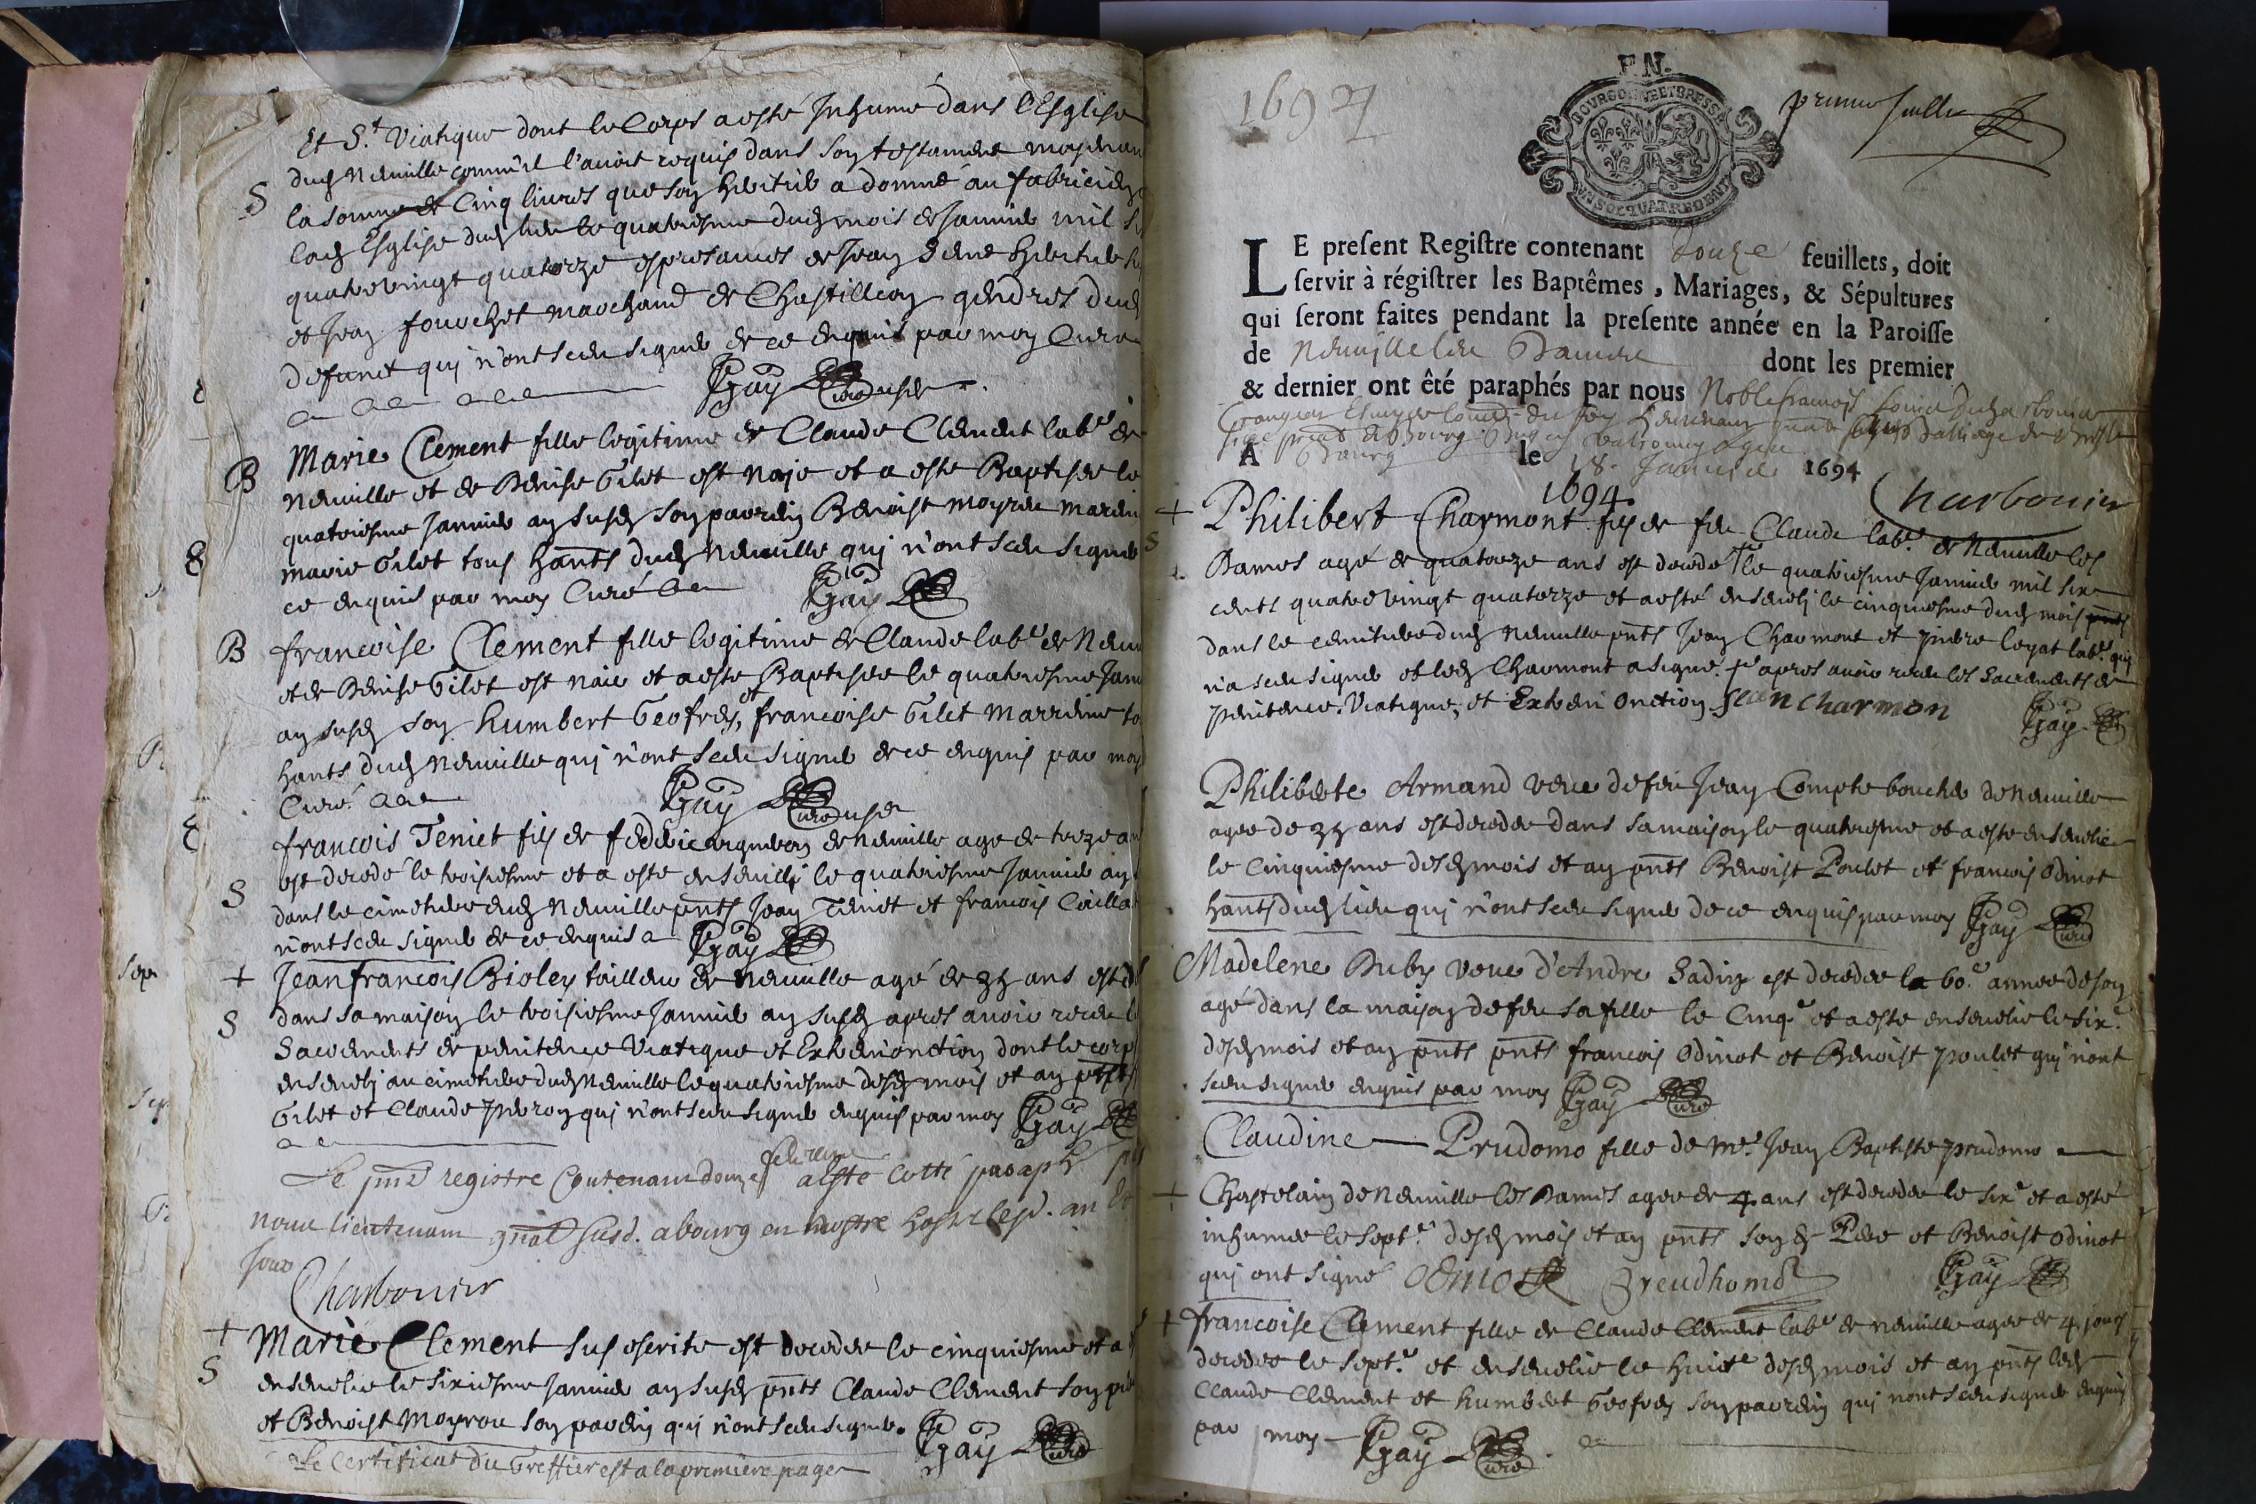 Et S.t Viatique dont le Corps a esté Inhumé dans l'Esglise
dud Neuville comm'il l'auoit requis dans son testament moyenan
S
la somme de Cinq liures que son heritier a donné au fabricien
lad Esglise dud lieu le quatriesme dud mois de Januier mil
quatre vingt quatorze es presances de Jean
et Jean fourchet marchand de Chastillion gendres dud
defunct qui n'ont sceu signer de ce enquis par moy Curé
Gay Curé
B
Marie Clement fille legitime de Claude Clement lab.r de
Neuville et de Denise Gilet est naje et a esté Baptisée le
quatriesme Januier an susd son parrein Benoist moyrou marein
marie Gilet tous hants dud Neuville qui n'ont sceu signer
ce enquis par moy Curé
Gay
B
francoise Clement fille legitime de Claude lab.r de Neuv
et de Denise Gilet est naie et a esté Baptisée le quatriesme Janu
an susd son humbert Geofrey, et francoise Gilet Marreine to
hants dud Neuville qui n'ont sceu signer de ce enquis par moy
Curé
Gay Curé
francois Teniet fils de federic de Neuville agé de treze an
est decedé le troisiesme et a esté enseuelj le quatriesme Januier an
S
dans le cimetiere dud Neuville pnts Jean Teniet et francois Caillat
n'ont sceu signer de ce enquis
Gay
+ Jean francois Bioley tailleur de Neuville agé de 35 ans est
S
dans sa maison le troisiesme Januier an susd apres auoir receu l
Sacrements de penitence Viatique et Extreme onction dont le corp
enseuelj au cimetiere dud Neuville le quatriesme desd mois et an pnts
Gilet et Claude peron qui n'ont sceu signer enquis par moy Gay
Le pnt registre Contenant douze feuillets a esté cotté paraph p
nous lieutenant gnal susd. a bourg en nostre hostel lesd. an &
Jour
Charbonier
+ Marie Clement sus escrite est decedée le cinquiesme et a
S
enseuelie le sixiesme Januier an susd pnts Claude Clement son pere
et Benoist Moyrou son parein qui n'ont sceu signer. Gay Curé
Le Certificat du Greffier est a la premiere page
1694
F.N.
BOURGOGNE ET BRESSE
UN SOL QUATRE DENI
premier feuillet
LE present Registre contenant Douze feuillets, doit
servir à régistrer les Baptêmes, Mariages, & Sépultures
qui seront faites pendant la presente année en la Paroisse
de Neuville les Dames dont les premier
& dernier ont êté paraphés par nous Noble francois
A Bourg le 18. Januier 1694
Charbonier
1694.
+ Philibert Charmont fils de feu Claude lab.r de Neuville les
S
Dames agé de quatorze ans est decedé le quatriesme Januier mil six
cents quatre vingt quatorze et a esté enseuelj le cinquiesme dud mois
dans le cemitiere dud Neuville pnts Jean Charmont et pierre loyat lab.r qui
n'a sceu signer et led Charmont a signé. apres auoir receu les Sacrements de
penitence, Viatique, et Extreme Onction Jean Charmon
Gay
Philiberte Armand veue de feu Jean Compte boucher de Neuville
agee de 35 ans est decedee dans sa maison le quatriesme et a esté enseuelie
le cinquiesme desd mois et an pnts Benoist Poulet et francois Odinot
hants dud lieu qui n'ont sceu signer de ce enquis par moy Gay Curé
Madelene Buby veue d'Andre Sadin est decedee la 60.e annee de son
agé dans la maison de feu sa fille le Cinq.e et a esté enseuelie le six.e
desd mois et an pnts pnts francois Odinot et Benoist poulet qui n'ont
sceu signer enquis par moy Gay Curé
Claudine Prudomo fille de m.e Jean Baptiste prudomo
+ Chastelain de Neuville les Dames agee de 4 ans est decedee le six.e et a esté
inhumee le sept.e desd mois et an pnts son d. Pere et Benoist Odinot
qui ont signé Odinot Preudhomo Gay
+ francoise Clement fille de Claude Clement lab.r de Neuville agee de 4 jours
decedee le sept.e et enseuelie le huict.e desd mois et an pnts led
Claude Clement et humbert Geofrey son parrein qui n'ont sceu signer enquis
par moy Gay Curé